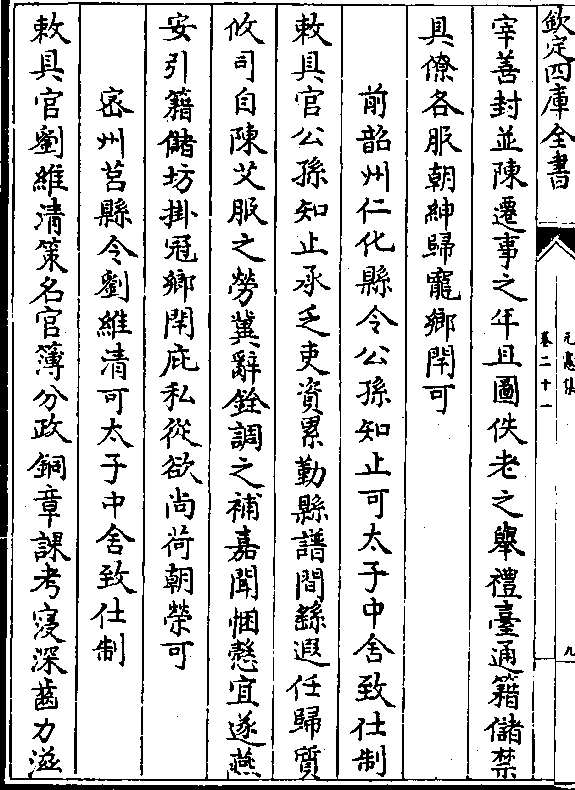 欽定四庫全書
元憲集
卷二十一
九
宰善封並陳遷事之年且圖佚老之舉禮臺通籍儲禁
具僚各服朝紳歸寵鄉閈可
前韶州仁化縣令公孫知止可太子中舍致仕制
敕具官公孫知止承乏吏資累勤縣譜間繇遐任歸質
攸司自陳艾服之勞冀辭銓調之補嘉聞悃愨宜遂燕
安引籍儲坊掛冠鄉閈庇私從欲尚荷朝榮可
密州莒縣令劉維清可太子中舍致仕制
敕具官劉維清策名官簿分政銅章課考寖深齒力滋